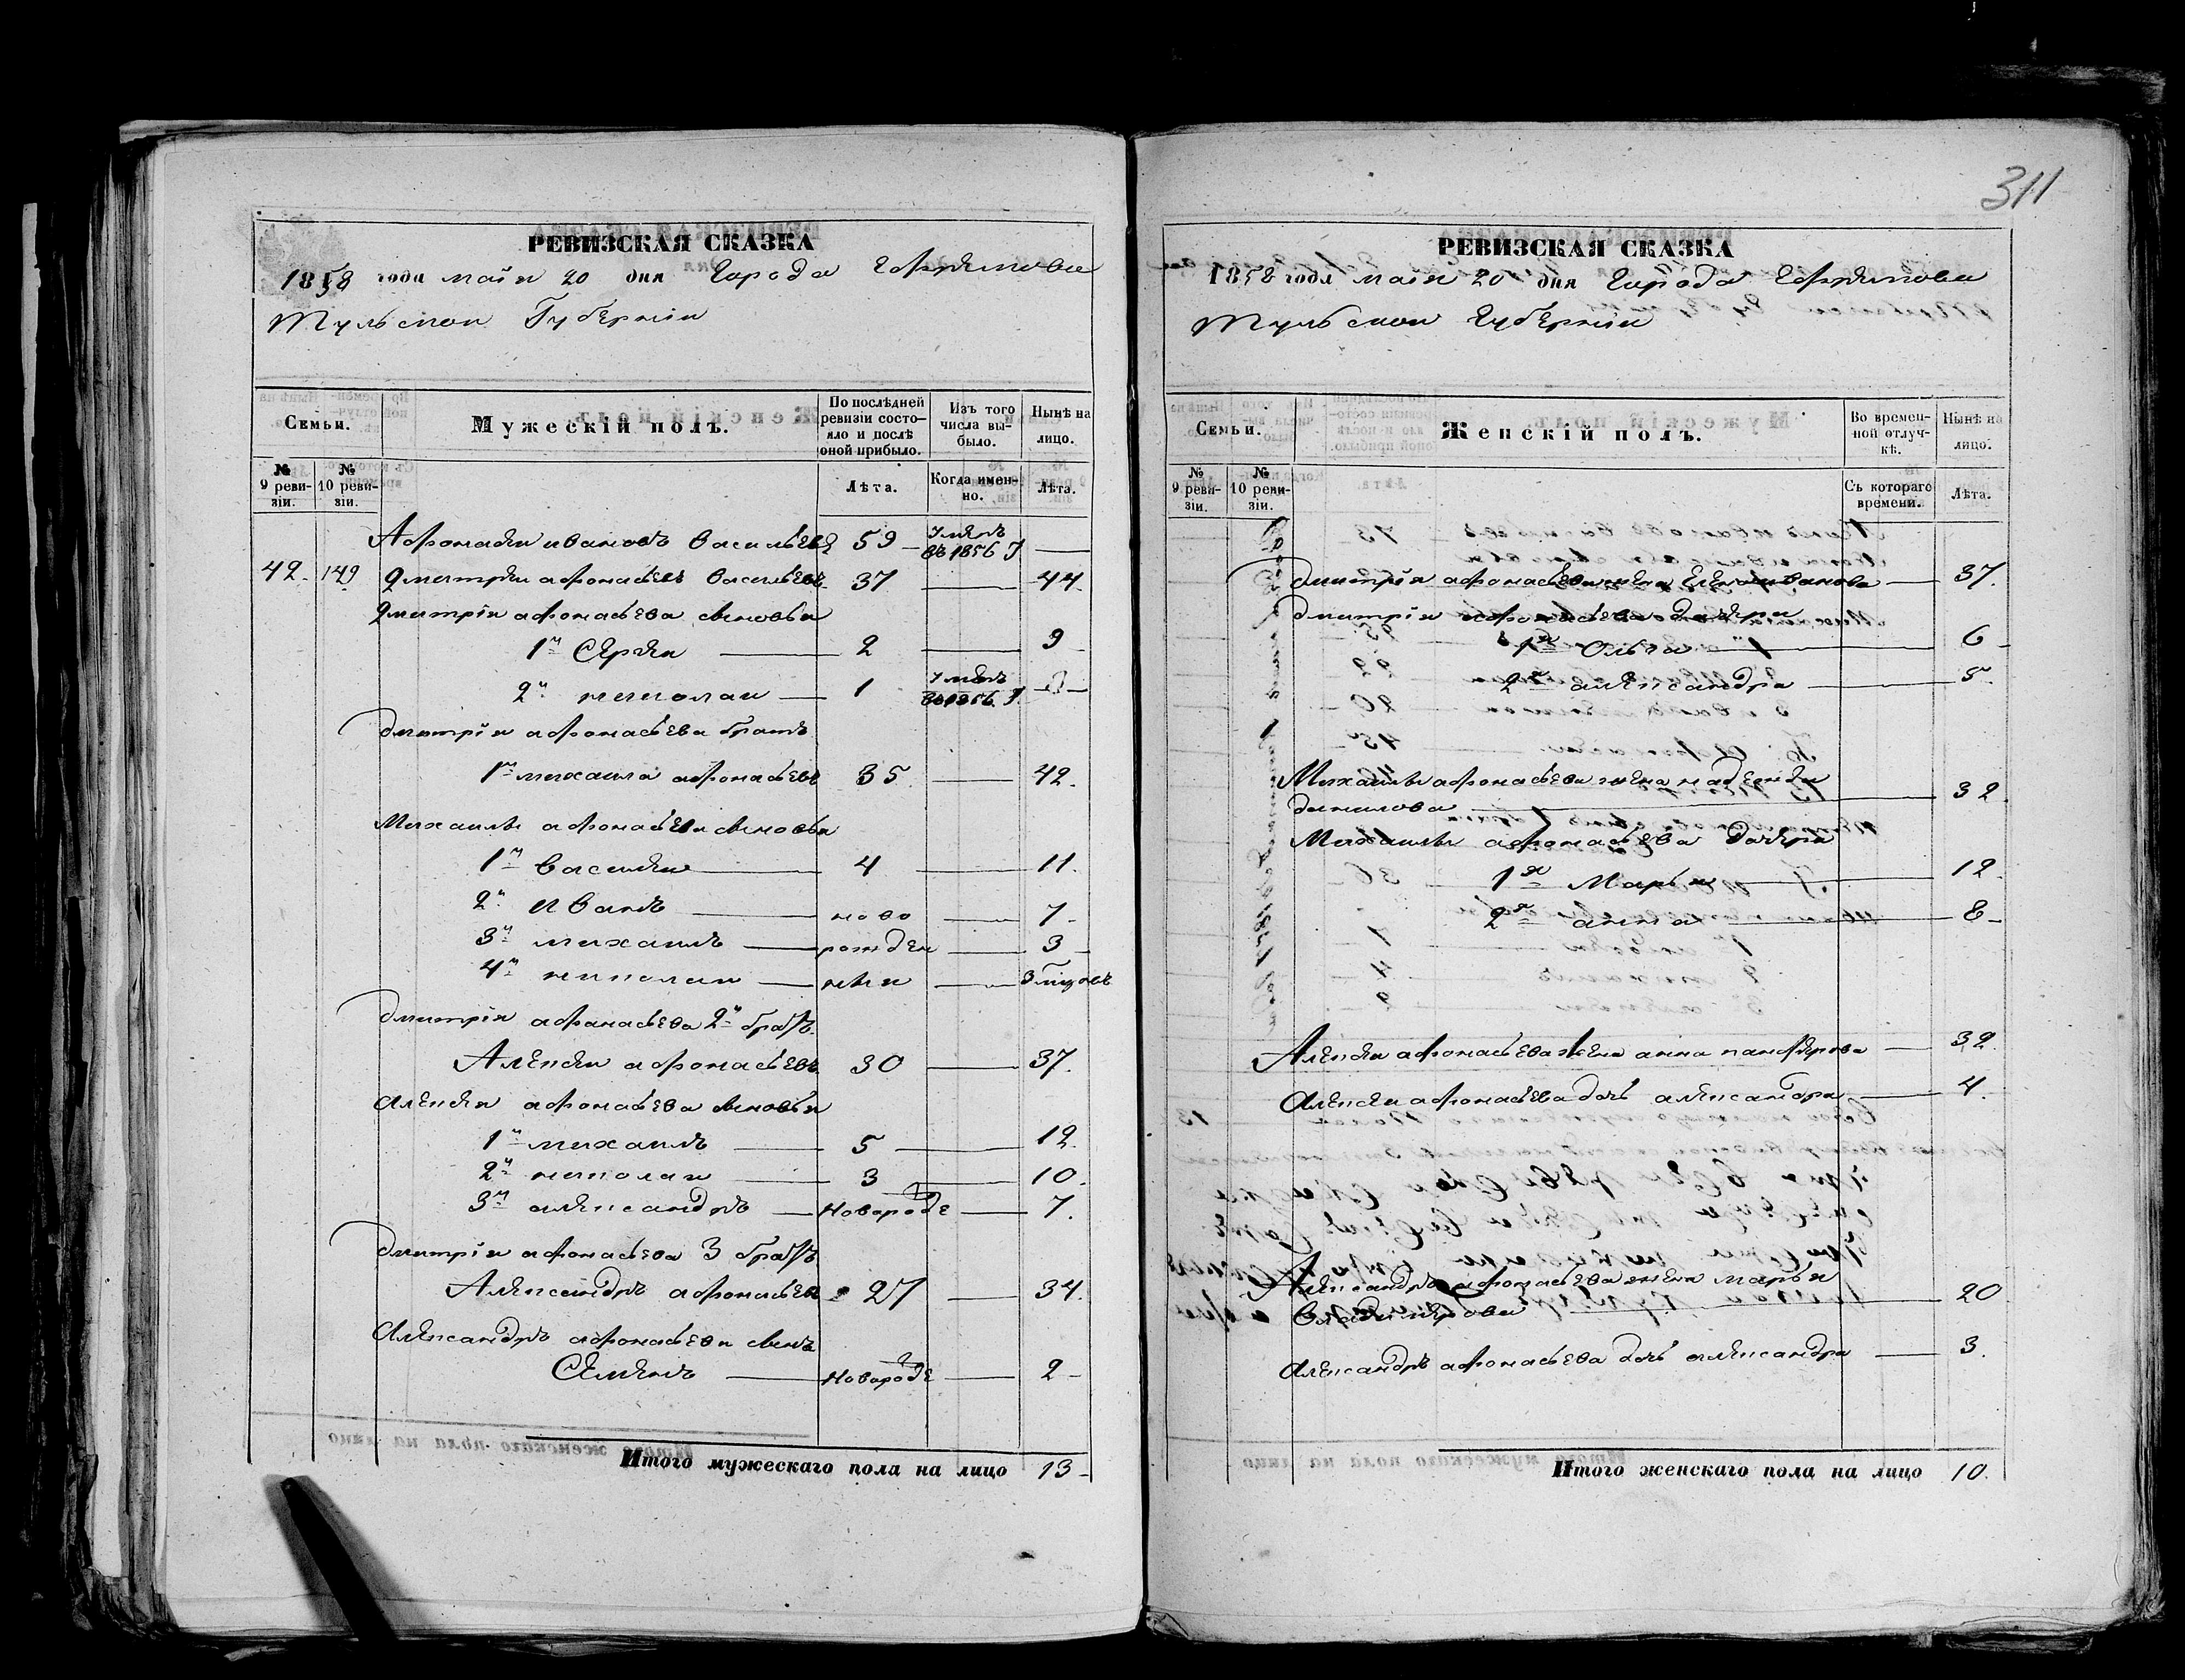 311
РЕВИЗСКАЯ СКАЗКА
1858 года маія 20 дня Города Ефрѣмова
Тульской Губерніи
Семьи.
Мужескій полъ.
По послѣдней ревизіи состояло и послѣ оной прибыло.
Изъ того числа выбыло.
Нынѣ на лицо.
№ 9 ревизіи.
№ 10 ревизіи.
Лѣта.
Когда именно.
Лѣта.
Афонасѣй ивановъ Васильевъ 59 Умѣръ въ 1856 г
42. 149. Дмитрѣй афонасьевъ Васильевъ 37 44.
Дмитрія афонасьева сыновья
1й Сѣргѣй 2 9
2й николай 1 Умѣръ въ 1856 г.
Дмитрія афонасьева братъ
1й михаила афонасьевъ 35 42.
Михаилы афонасьева сыновья
1й Василѣй 4 11.
2й иванъ ново 7
3й михаилъ рожден 3
4й николай ныя
Дмитрія афанасьева 2й братъ
Алѣксѣй афонасьевъ 30 37.
Алѣксѣя афонасьева сыновья
1й михаилъ 5 12.
2й николай 3 10.
3й алѣксандръ Новорожде 7.
Дмитрія афонасьева 3 братъ
Алѣксандръ афонасьевъ 27 34.
Алѣксандръ афонасьева сынъ
Сѣмѣнъ Новорожде 2
Итого мужескаго пола на лицо 13
РЕВИЗСКАЯ СКАЗКА
1858 года маія 20 дня Города Ефрѣмова
Тульской Губерніи
Семьи.
Женскій полъ.
Во временной отлучкѣ.
Нынѣ на лицо.
№ 9 ревизіи.
№ 10 ревизіи.
Съ котораго времени.
Лѣта.
Дмитрія афонасьева жена Елена иванова 37.
Дмитрія афонасьева дочѣри
1я Ольга 6
2я алѣксандра 5.
Михаилы афонасьева жена надежда
данилова 32
Михаилы афонасьева дочѣри
1я Марья 12.
2я анна 8
Алѣксѣя афонасьева жена анна панфѣрова 32
Алѣксѣя афонасьева дочь алѣксандра 4.
Алѣксандръ афонасьева жена марья
Владимѣрова 20
Алѣксандръ афонасьева дочь алѣксандра 3.
Итого женскаго пола на лицо 10.